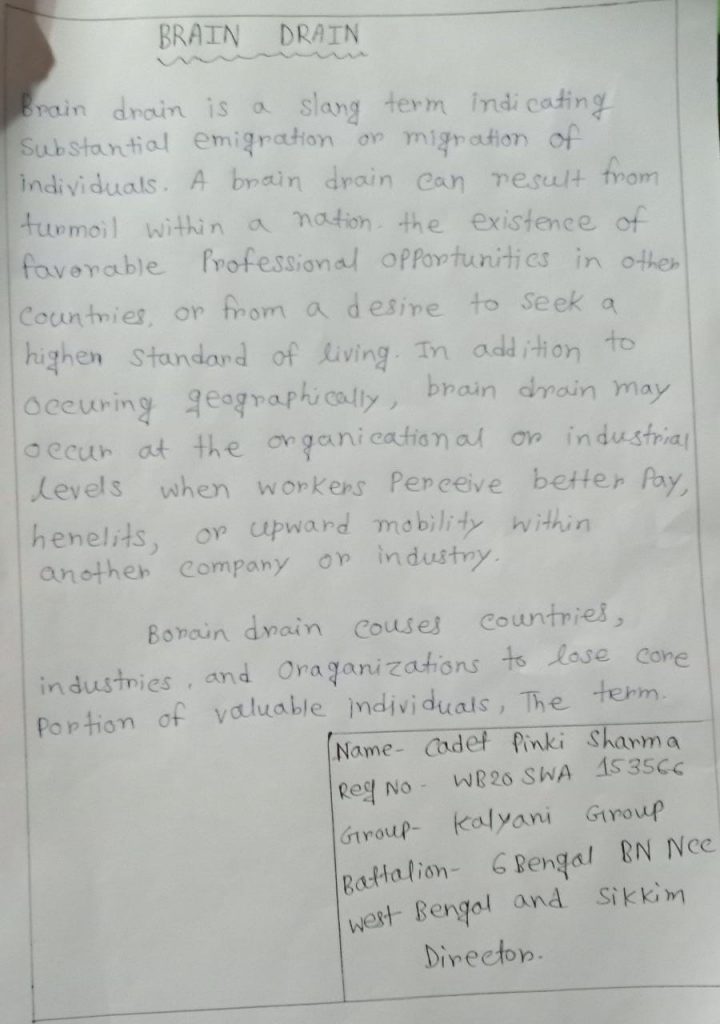 BRAIN DRAIN
Brain drain is a slang term indicating
Substantial emigration or migration of
individuals. A brain drain can result from
turmoil within a nation. the existence of
favorable Professional opportunitics in other
Countries, or from a desire to seek a
higher standard of living. In addition to
occuring geographically, brain drain may
occur at the organicational or industrial
levels when workers Perceive better Pay,
henelits, or upward mobility within
another company or industry.
Borain drain couses countries,
industries, and Oraganizations to lose core
Portion of valuable individuals, The term.
Name- Cadet Pinki Sharma
Reg No - WB20 SWA 153566
Group- Kalyani Group
Battalion- 6 Bengal BN Ncc
West Bengal and Sikkim
Director.